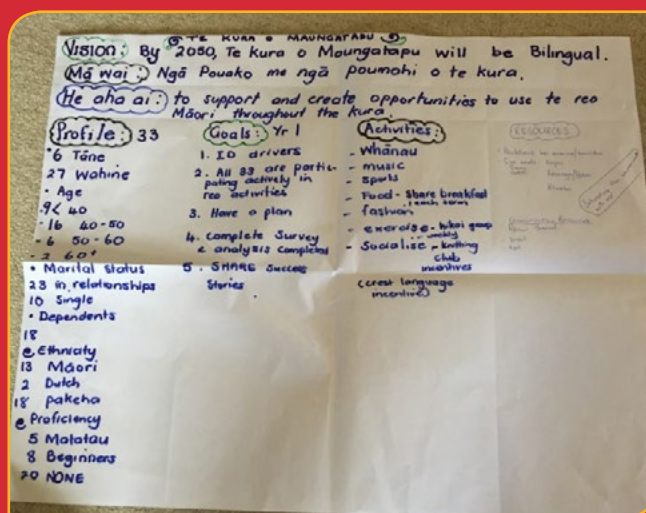 TE KURA O MAUNGATAPU
Vision: By 2050, Te kura o Maungatapu will be Bilingual.
Mā wai: Ngā Pouako me ngā poumahi o te kura.
He aha ai: to support and create opportunities to use te reo
Māori throughout the kura.
Profile: 33
6 Tāne
27 Wahine
• Age
- 9 < 40
- 16 40-50
- 6 50-60
- 2 60+
• Marital Status
23 in relationships
10 Single
• Dependents
18
Ethnicity
13 Māori
2 Dutch
18 pakeha
Proficiency
5 Matatau
8 Beginners
20 NONE
Goals: Yr 1
1. ID drivers
2. All 33 are partic-
pating actively in
reo activities
3. Have a plan
4. Complete Survey
& analysis completed
5. SHARE Success
Stories
Activities:
- Whānau
- music
- sports
- Food - Share breakfast
each term
- fashion
- exercise - hikoi group
weekly
- Socialise - knitting
club
incentives
(cerst language
incentive)
RESOURCES